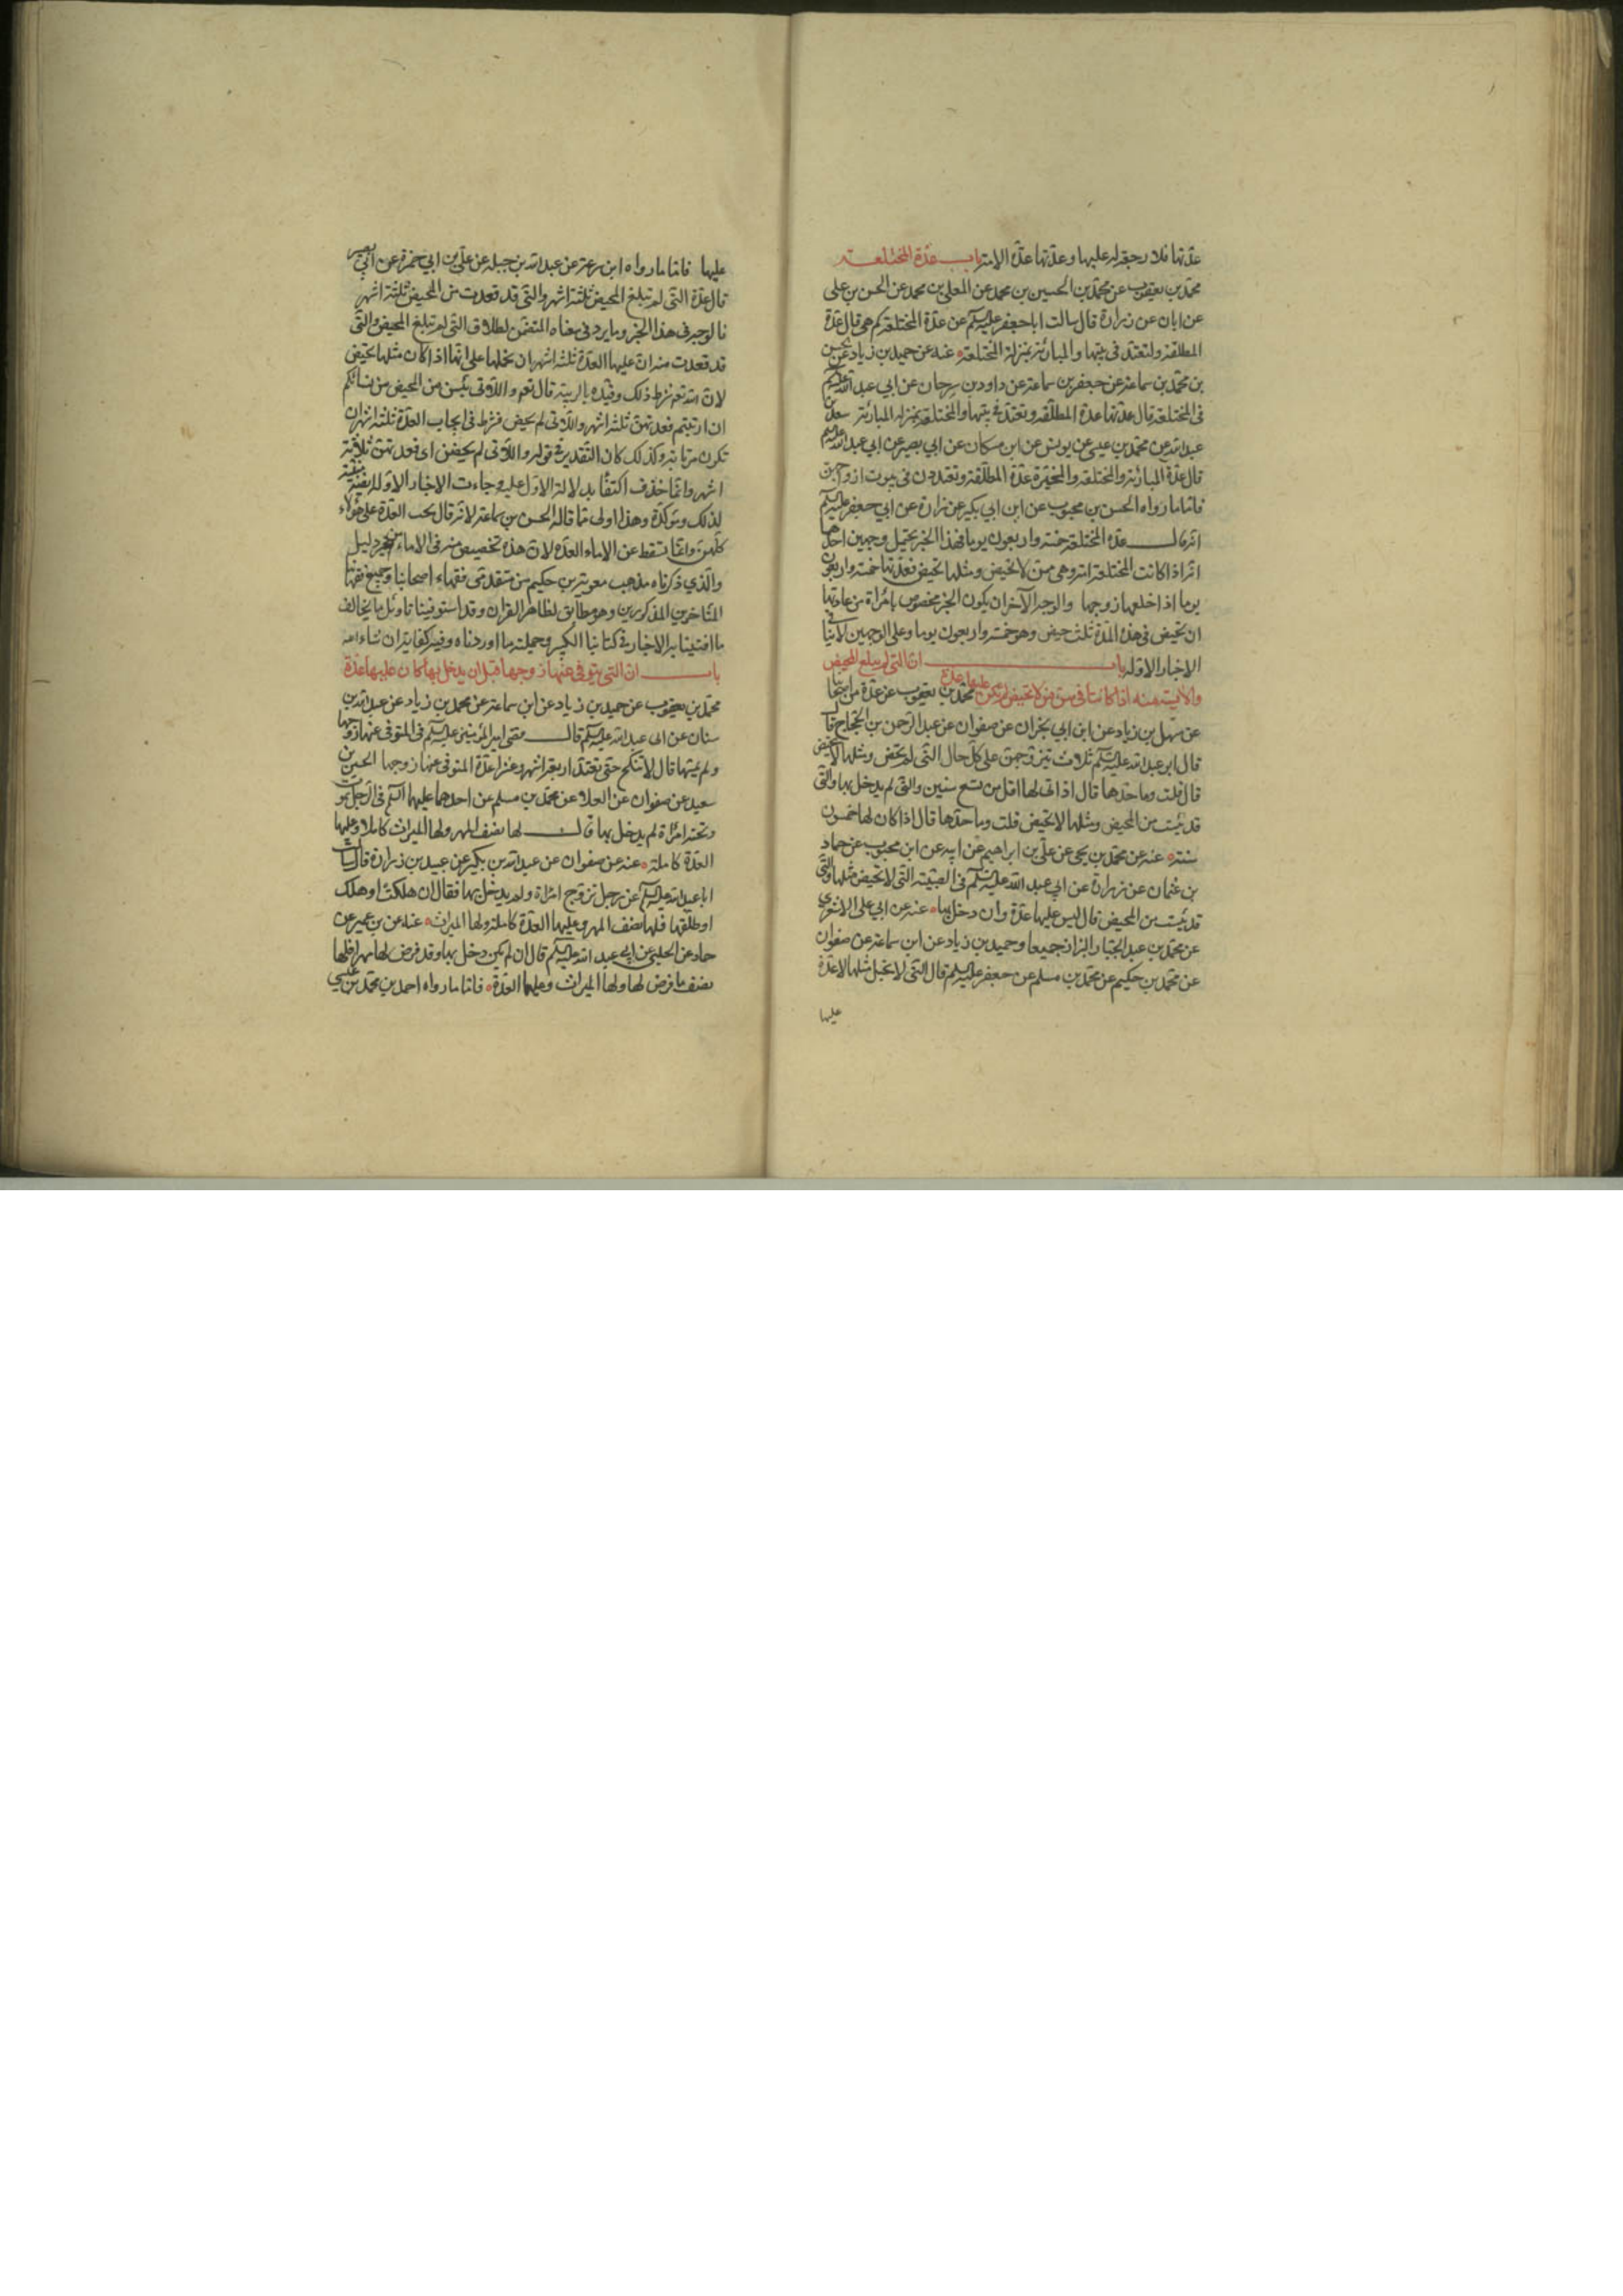 عدتها فلا رجعة له عليها وعدتها عدة الامة باب عدة المختلعة
محمد بن يعقوب عن محمد بن الحسين بن محمد عن المعلى بن محمد عن الحسن بن علي
عن ابان عن زرارة قال سالت ابا جعفر عليه السلم عن عدة المختلعة كم هي قال عدة
المطلقة ولتعتد في بيتها والمبارئة بمنزلة المختلعة عنه عن حميد بن زياد عن الحسن
بن محمد بن سماعة عن جعفر بن سماعة عن داود بن سرحان عن ابي عبد الله عليه السلم
في المختلعة قال عدتها عدة المطلقة وتعتد في بيتها والمختلعة بمنزلة المبارئة سعد بن
عبد الله عن محمد بن عيسى عن يونس عن ابن مسكان عن ابي بصير عن ابي عبد الله عليه السلم
قال عدة المبارئة والمختلعة والمخيرة عدة المطلقة وتعتددن في بيوت ازواجهن
فاما ما رواه الحسن بن محبوب عن ابن ابي بكير عن زرارة عن ابي جعفر عليه السلم
انه قال عدة المختلعة خمسة واربعون يوما فهذا الخبر يحتمل وجهين احدهما
انه اذا كانت المختلعة امة وهي ممن لا تحيض ومثلها تحيض فعدتها خمسة واربعون
يوما اذا خلعها زوجها والوجه الآخر ان يكون الخبر مخصوص بامراة من عادتها
ان تحيض في هذه المدة ثلث حيض وهو خمسة واربعون يوما وعلى الوجهين لا تنافي
الاخبار الاولة باب ان التي لم يبلغ المحيض
والآيسة منه اذا كانتا في سن من لا تحيض لم تكن عليها عدة محمد بن يعقوب عن عدة من اصحابنا
عن سهل بن زياد عن ابن ابي نجران عن صفوان عن عبد الرحمن بن الحجاج قال
قال ابو عبد الله عليه السلم ثلاث يتزوجن على كل حال التي لم تحض ومثلها لا تحيض
قال قلت وما حدها قال اذا اتى لها اقل من تسع سنين والتي لم يدخل بها والتي
قد يئست من المحيض ومثلها لا تحيض قلت وما حدها قال اذا كان لها خمسون
سنة عنه عن محمد بن يحيى عن علي بن ابراهيم عن ابيه عن ابن محبوب عن حماد
بن عثمان عن زرارة عن ابي عبد الله عليه السلم في الصبية التي لا تحيض مثلها والتي
قد يئست من المحيض قال ليس عليها عدة وان دخل بها عنه عن ابي علي الاشعري
عن محمد بن عبد الجبار والبزاز جميعا وحميد بن زياد عن ابن سماعة عن صفوان
عن محمد بن حكيم عن محمد بن مسلم عن جعفر عليه السلم قال التي لا تحبل مثلها لا عدة
عليها
عليها فاما ما رواه ابن سماعة عن عبد الله بن جبلة عن علي بن ابي حمزة عن ابي بصير
قال عدة التي لم تبلغ المحيض ثلثة اشهر والتي قد قعدت من المحيض ثلثة اشهر
فالوجه في هذا الخبر وما يرد في معناه المتضمن لطلاق التي لم تبلغ المحيض والتي
قد قعدت منه ان عليها العدة ثلثة اشهر ان نحملها على انها اذا كان مثلها تحيض
لان الله تعالى شرط ذلك وقيده بالريبة قال تعالى واللاتي يئسن من المحيض من نسائكم
ان ارتبتم فعدتهن ثلثة اشهر واللاتي لم يحضن فشرط في ايجاب العدة ثلثة اشهر ان
تكون مرتابة وكذلك كان التقدير في قوله واللاتي لم يحضن اي فعدتهن ثلاثة
اشهر وانما حذف اكتفاء بدلالة الاول عليه وجاءت الاخبار الاولة مبينة
لذلك وموكدة وهذا اولى مما قاله الحسن بن سماعة لانه قال تجب العدة على هؤلاء
كلهن وانما تسقط عن الاماء العدة لان هذه تخصيص منه في الاماء من غير دليل
والذي ذكرناه مذهب معوية بن حكيم من متقدمي فقهاء اصحابنا وجميع فقهائنا
المتاخرين المذكورين وهو مطابق لظاهر القران وقد استوفينا تاويل ما يخالف
ما افتينا به الاخبار في كتابنا الكبير وجملته ما اوردناه وفيه كفاية ان شاء الله
باب ان التي يتوفى عنها زوجها قبل ان يدخل بها كان عليها عدة
محمد بن يعقوب عن حميد بن زياد عن ابن سماعة عن محمد بن زياد عن عبد الله بن
سنان عن ابي عبد الله عليه السلم قال قضى امير المؤمنين عليه السلم في المتوفى عنها زوجها
ولم يمسها قال لا تنكح حتى تعتد اربعة اشهر وعشرا عدة المتوفى عنها زوجها الحسين بن
سعيد عن صفوان عن العلا عن محمد بن مسلم عن احدهما عليهما السلم في الرجل يموت
وتحته امراة لم يدخل بها قال لها نصف المهر ولها الميراث كاملا وعليها
العدة كاملة عنه عن صفوان عن عبد الله بن بكير عن عبيد بن زرارة قال سالت
ابا عبد الله عليه السلم عن رجل تزوج امراة ولم يدخل بها فقال ان هلكت او هلك
او طلقها فلها نصف المهر وعليها العدة كاملة ولها الميراث عنه عن بن عمير عن
حماد عن الحلبي عن ابي عبد الله عليه السلم قال ان لم يكن دخل بها وقد فرض لها مهرا فلها
نصف ما فرض لها ولها الميراث وعليها العدة فاما ما رواه احمد بن محمد بن عيسى